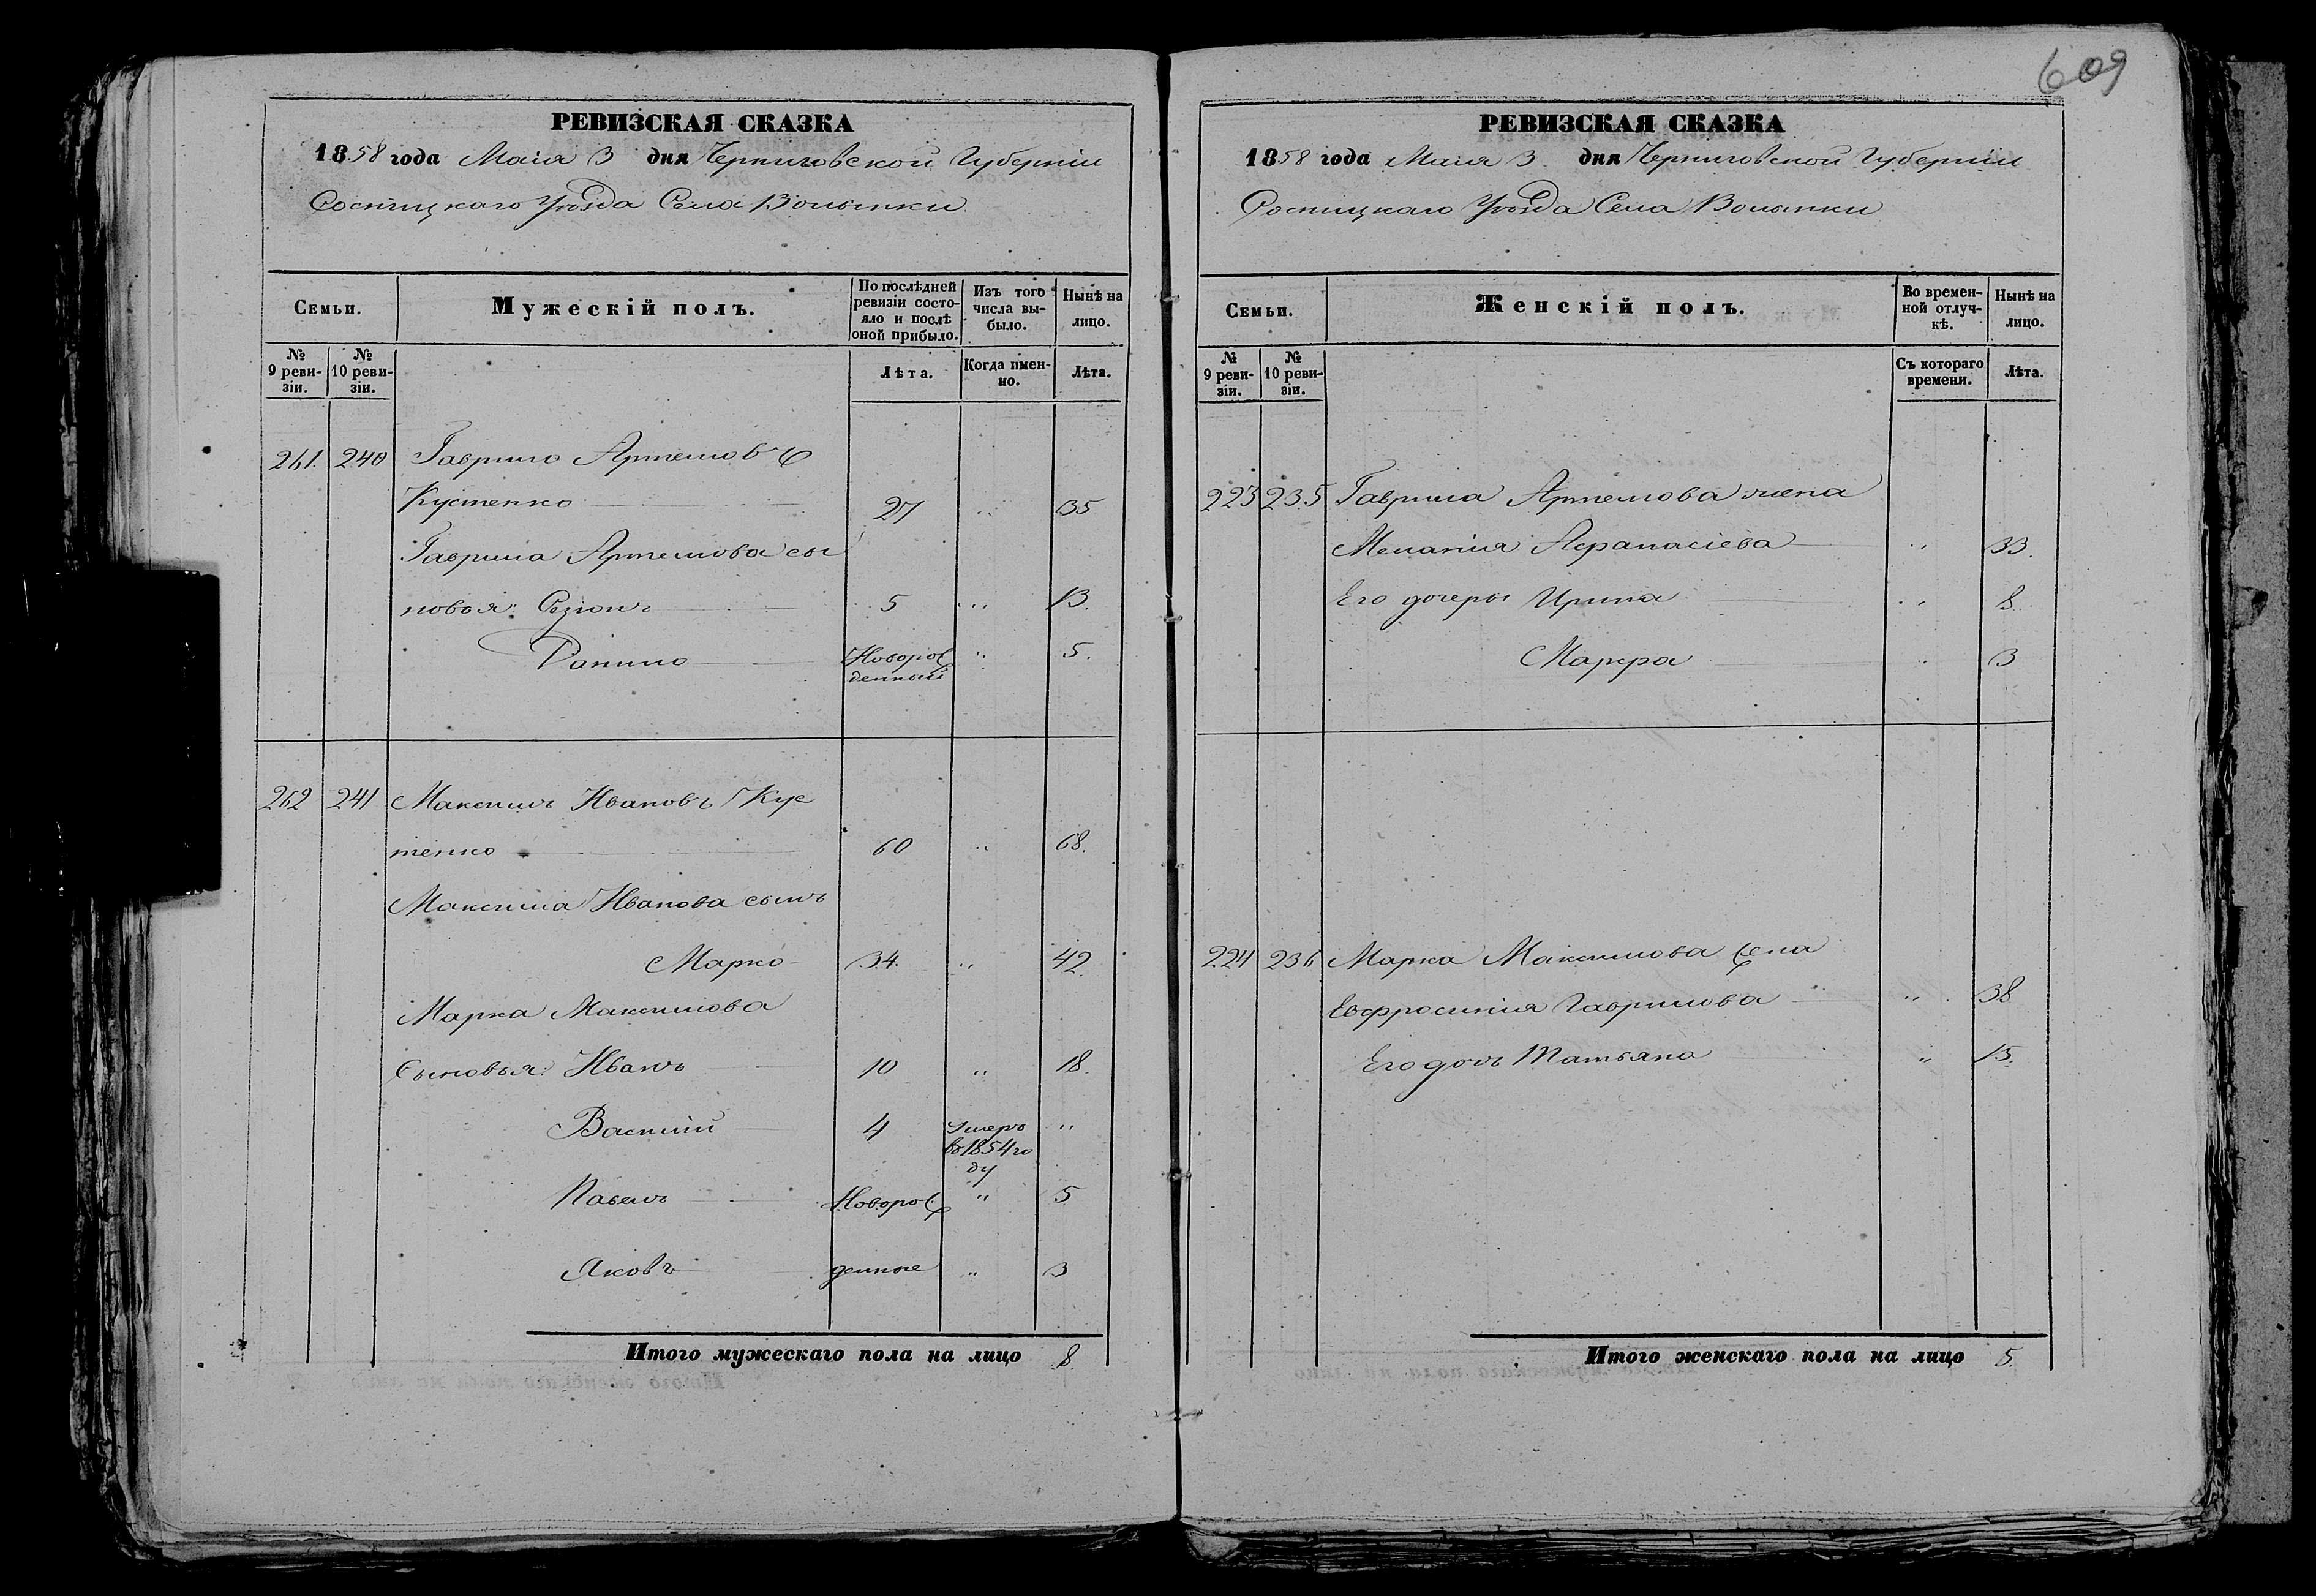 609
РЕВИЗСКАЯ СКАЗКА
1858 года Маія 3 дня Черниговской Губерніи
Сосницкаго Уѣзда Села Волынки
Семьи.
Мужескій полъ.
По послѣдней ревизіи состояло и послѣ оной прибыло.
Изъ того числа выбыло.
Нынѣ на лицо.
№ 9 ревизіи.
№ 10 ревизіи.
Лѣта.
Когда именно.
Лѣта.
261. 240 Гаврило Артемовъ
Кустенко 27 „ 35
Гаврила Артемова сы
новья: Созонъ 5 „ 13.
Данило Новорож „ 5.
денный
262 241 Максимъ Ивановъ Кус
тенко 60 „ 68.
Максима Иванова сынъ
Марко 34. „ 42.
Марка Максимова
Сыновья: Иванъ 10 „ 18.
Василій 4 Умеръ „
въ 1854 го
ду
Павелъ Новорож „ 5
Яковъ денные „ 3
Итого мужескаго пола на лицо 8
РЕВИЗСКАЯ СКАЗКА
1858 года Маія 3 дня Черниговской Губерніи
Сосницкаго Уѣзда Села Волынки
Семьи.
Женскій полъ.
Во временной отлучкѣ.
Нынѣ на лицо.
№ 9 ревизіи.
№ 10 ревизіи.
Съ котораго времени.
Лѣта.
223 235 Гаврила Артемова жена
Меланія Афанасіева „ 33.
Его дочери Ирина „ 8.
Марфа „ 3
224 236 Марка Максимова жена
Евфросинія Гаврилова „ 38
Его дочь Татьяна „ 15.
Итого женскаго пола на лицо 5.